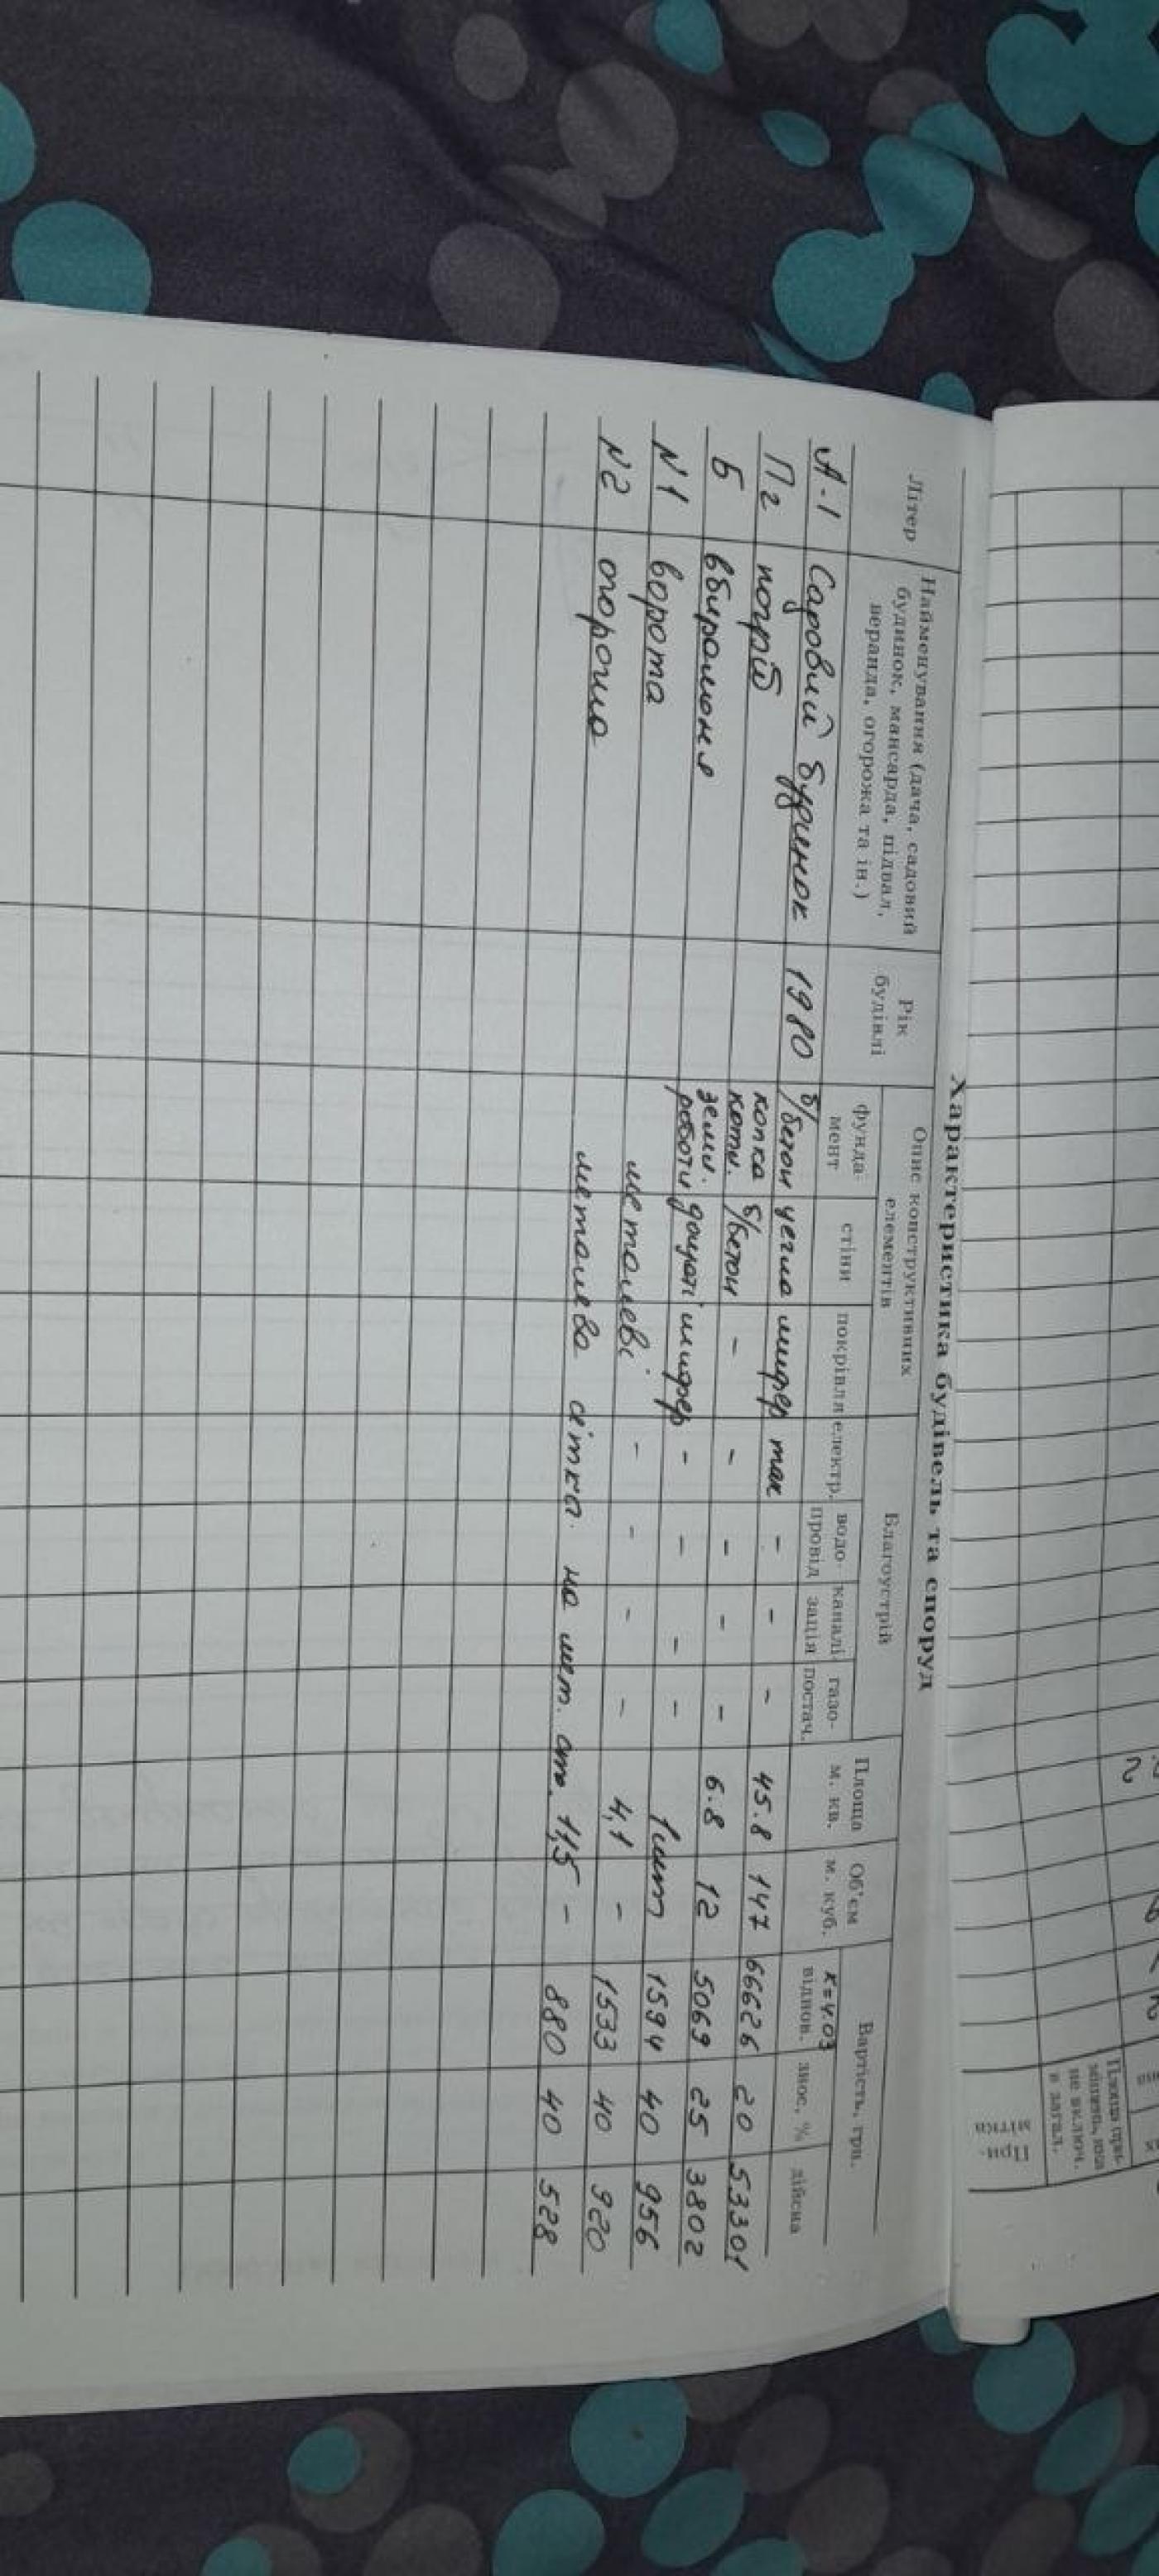 Характеристика будівель та споруд
Літер
Найменування (дача, садовий
будинок, мансарда, підвал,
веранда, огорожа та ін.)
Рік
будівлі
Опис конструктивних
елементів
фунда-
мент
стіни
покрівля
Благоустрій
електр.
водо-
провід
каналі
зація
газо-
постач.
Площа
м. кв.
Об'єм
м. куб.
Вартість, грн.
к=4.03
віднов.
знос, %
дійсна
А-1 Садовий будинок 1980 б/бетон цегла шифер так - - - 45.8 147 66626 20 53301
Пг погріб копка котл. б/бетон - - - - - 6.8 12 5069 25 3802
Б вбиральня земл. роботи дощаті шифер - - - - 1шт 1594 40 956
N1 ворота металеві - - - - 4,1 - 1533 40 920
N2 огорожа металева сітка на мет. ст. 11,5 - 880 40 528
Площа при-
не включ.
в загал.
При-
мітка
2